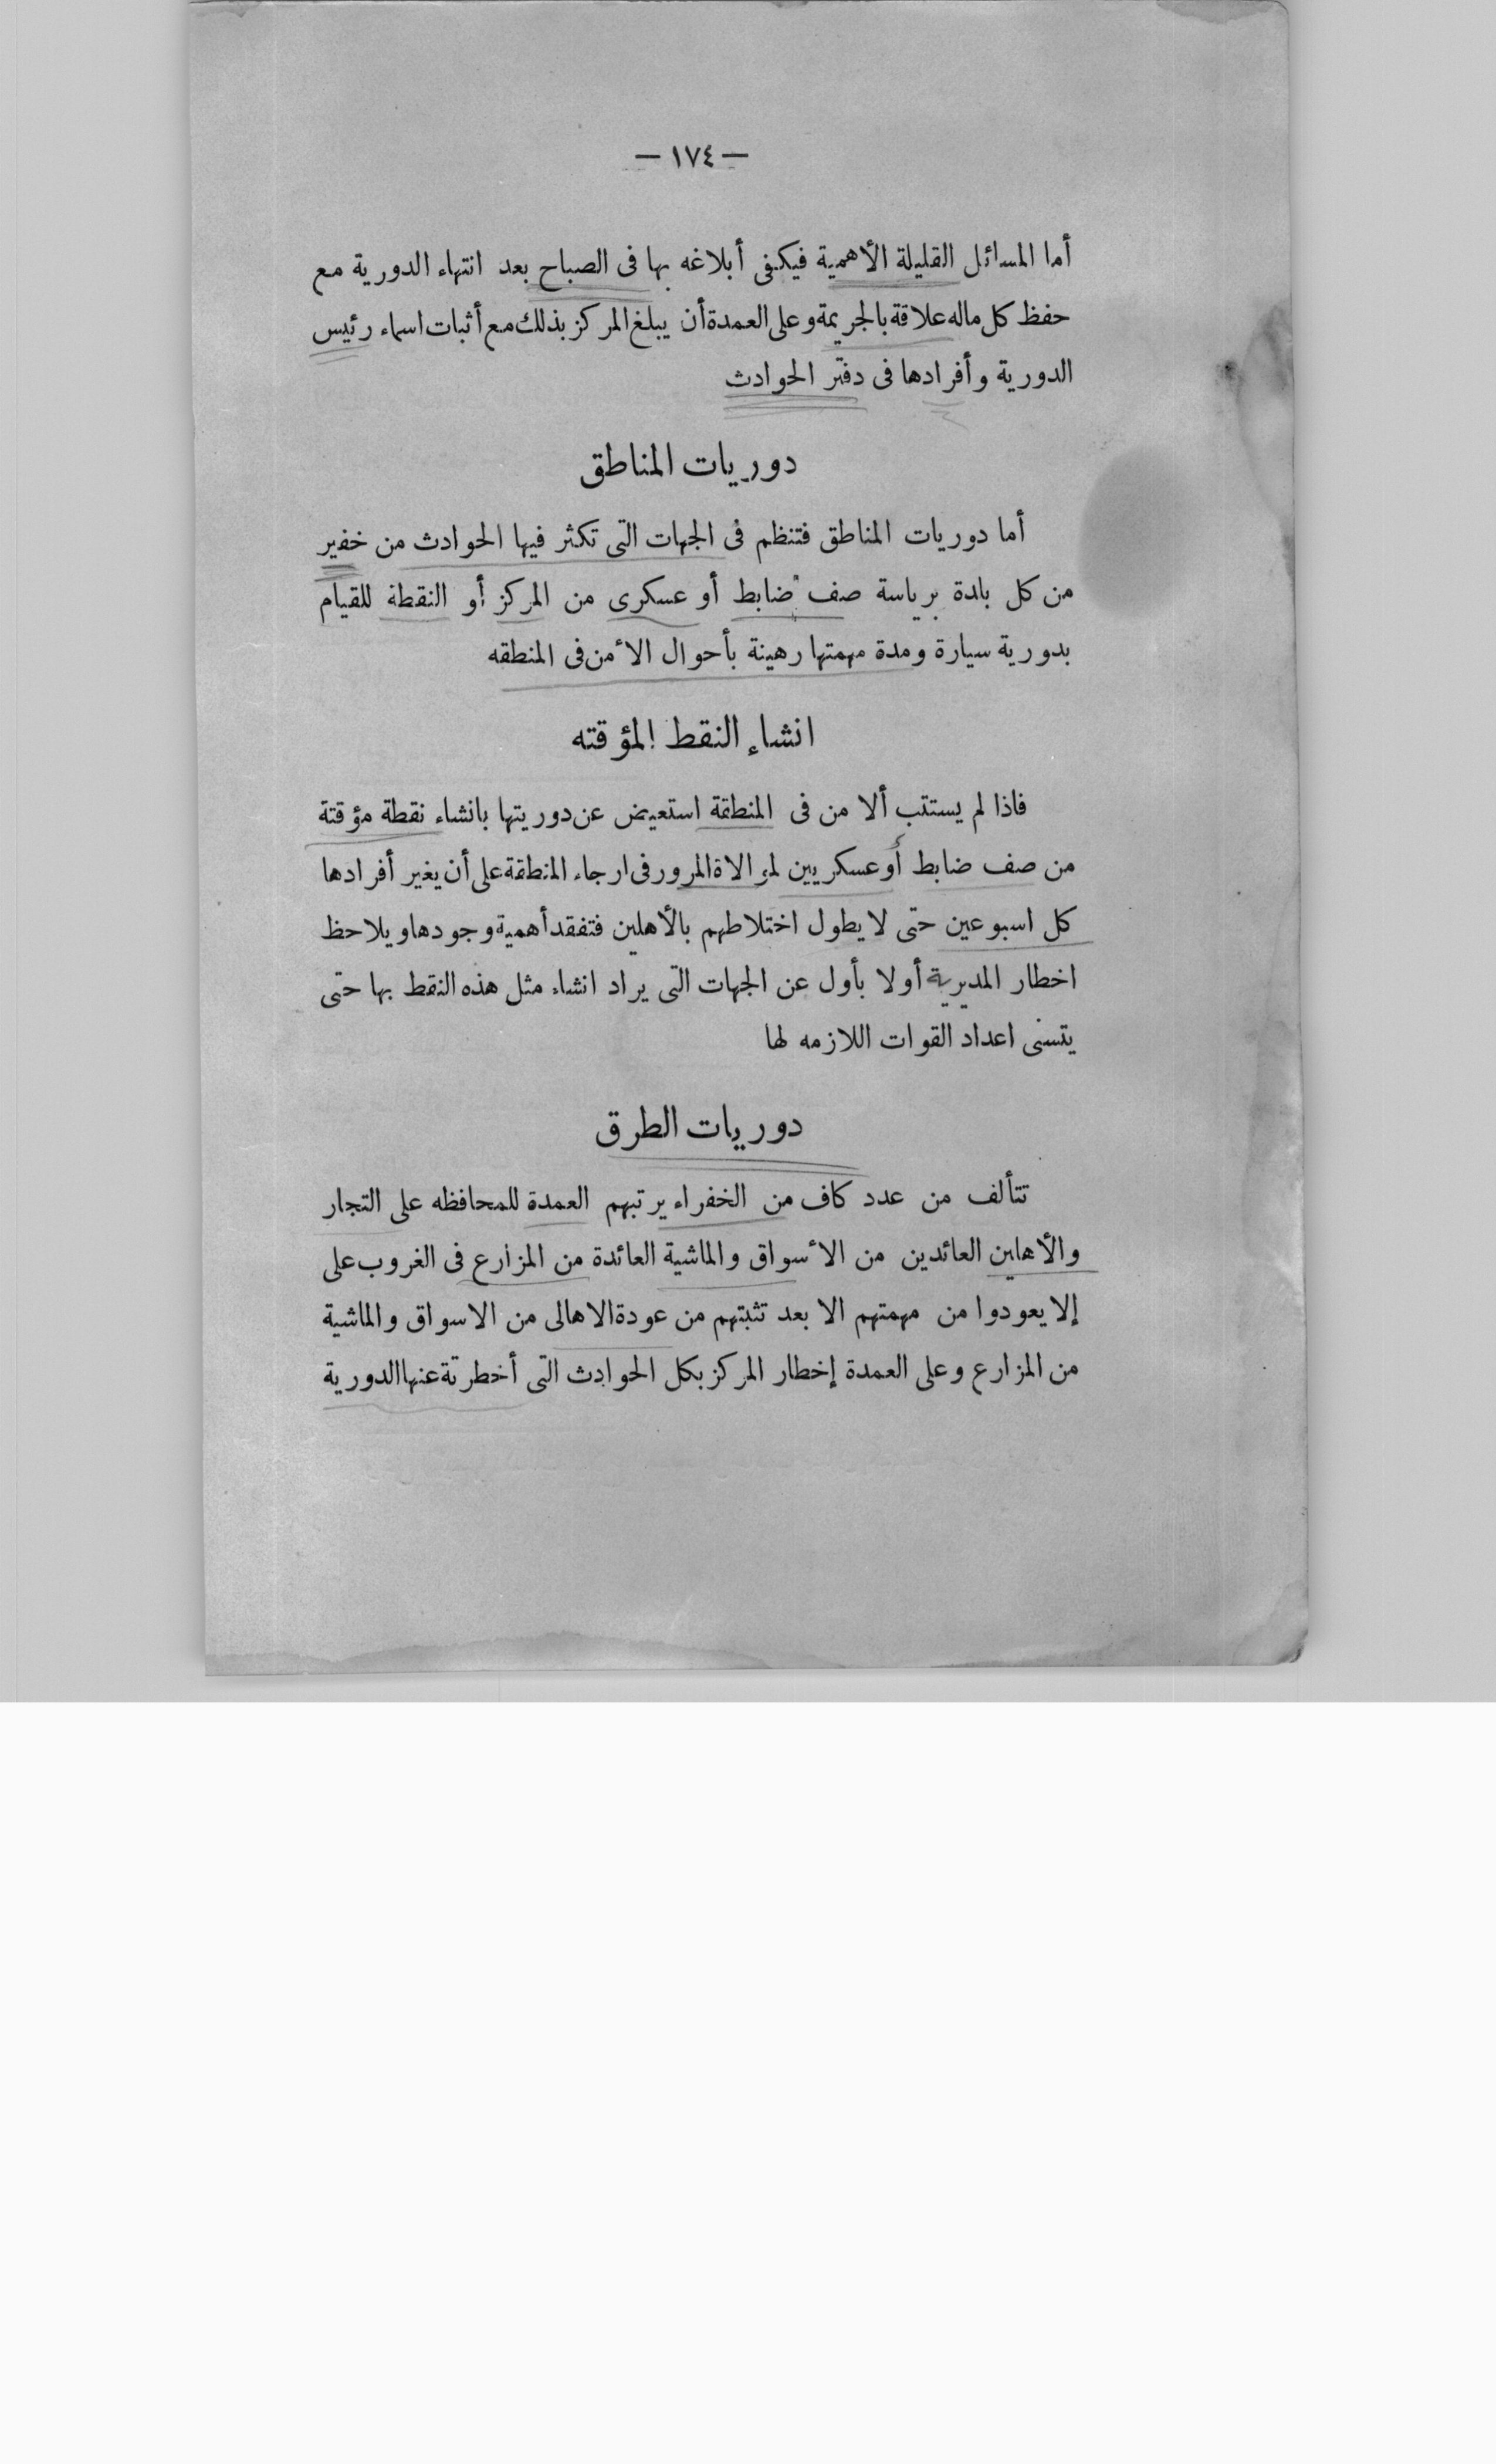 — ١٧٤ —
أما المسائل القليلة الأهمية فيكفى أبلاغه بها فى الصباح بعد انتهاء الدورية مع
حفظ كل ماله علاقة بالجريمة وعلى العمدة أن يبلغ المركز بذلك مع أثبات اسماء رئيس
الدورية وأفرادها فى دفتر الحوادث
دوريات المناطق
أما دوريات المناطق فتنظم فى الجهات التى تكثر فيها الحوادث من خفير
من كل بلدة برياسة صف ضابط أو عسكرى من المركز أو النقطة للقيام
بدورية سيارة ومدة مهمتها رهينة بأحوال الأمن فى المنطقه
انشاء النقط المؤقته
فاذا لم يستتب ألا من فى المنطقة استعيض عن دوريتها بانشاء نقطة مؤقتة
من صف ضابط أو عسكريين لموالاة المرور فى ارجاء المنطقة على أن يغير أفرادها
كل اسبوعين حتى لا يطول اختلاطهم بالأهلين فتفقد أهمية وجودها ويلاحظ
اخطار المديرية أولا بأول عن الجهات التى يراد انشاء مثل هذه النقط بها حتى
يتسنى اعداد القوات اللازمه لها
دوريات الطرق
تتألف من عدد كاف من الخفراء يرتبهم العمدة للمحافظه على التجار
والأهلين العائدين من الأسواق والماشية العائدة من المزارع فى الغروب على
إلا يعودوا من مهمتهم الا بعد تثبتهم من عودة الاهالى من الاسواق والماشية
من المزارع وعلى العمدة إخطار المركز بكل الحوادث التى أخطرتة عنها الدورية